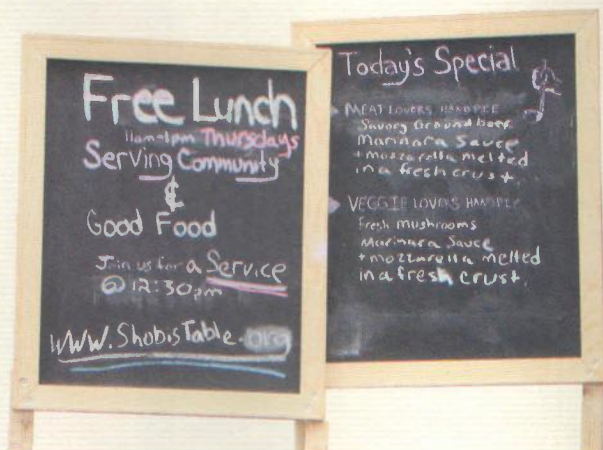 Free Lunch
11am-1pm Thursdays
Serving Community
&
Good Food
Join us for a Service
@ 12:30pm
WWW.ShobisTable.org
Today's Special
MEAT LOVERS HANDPIE
Savory Ground beef
Marinara Sauce
+ mozzarella melted
in a fresh crust.
VEGGIE LOVERS HANDPIE
Fresh mushrooms
Marinara Sauce
+ mozzarella melted
in a fresh crust.